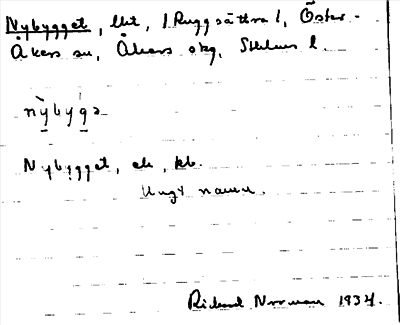 Nybygget, lht, /Ruggsättra/, Öster-
Åkers sn, Åkers skg, Sthlms l.
nỳby̱ga
Nybygget, ek, kb.
Ungt namn.
Rickard Norrman 1934.